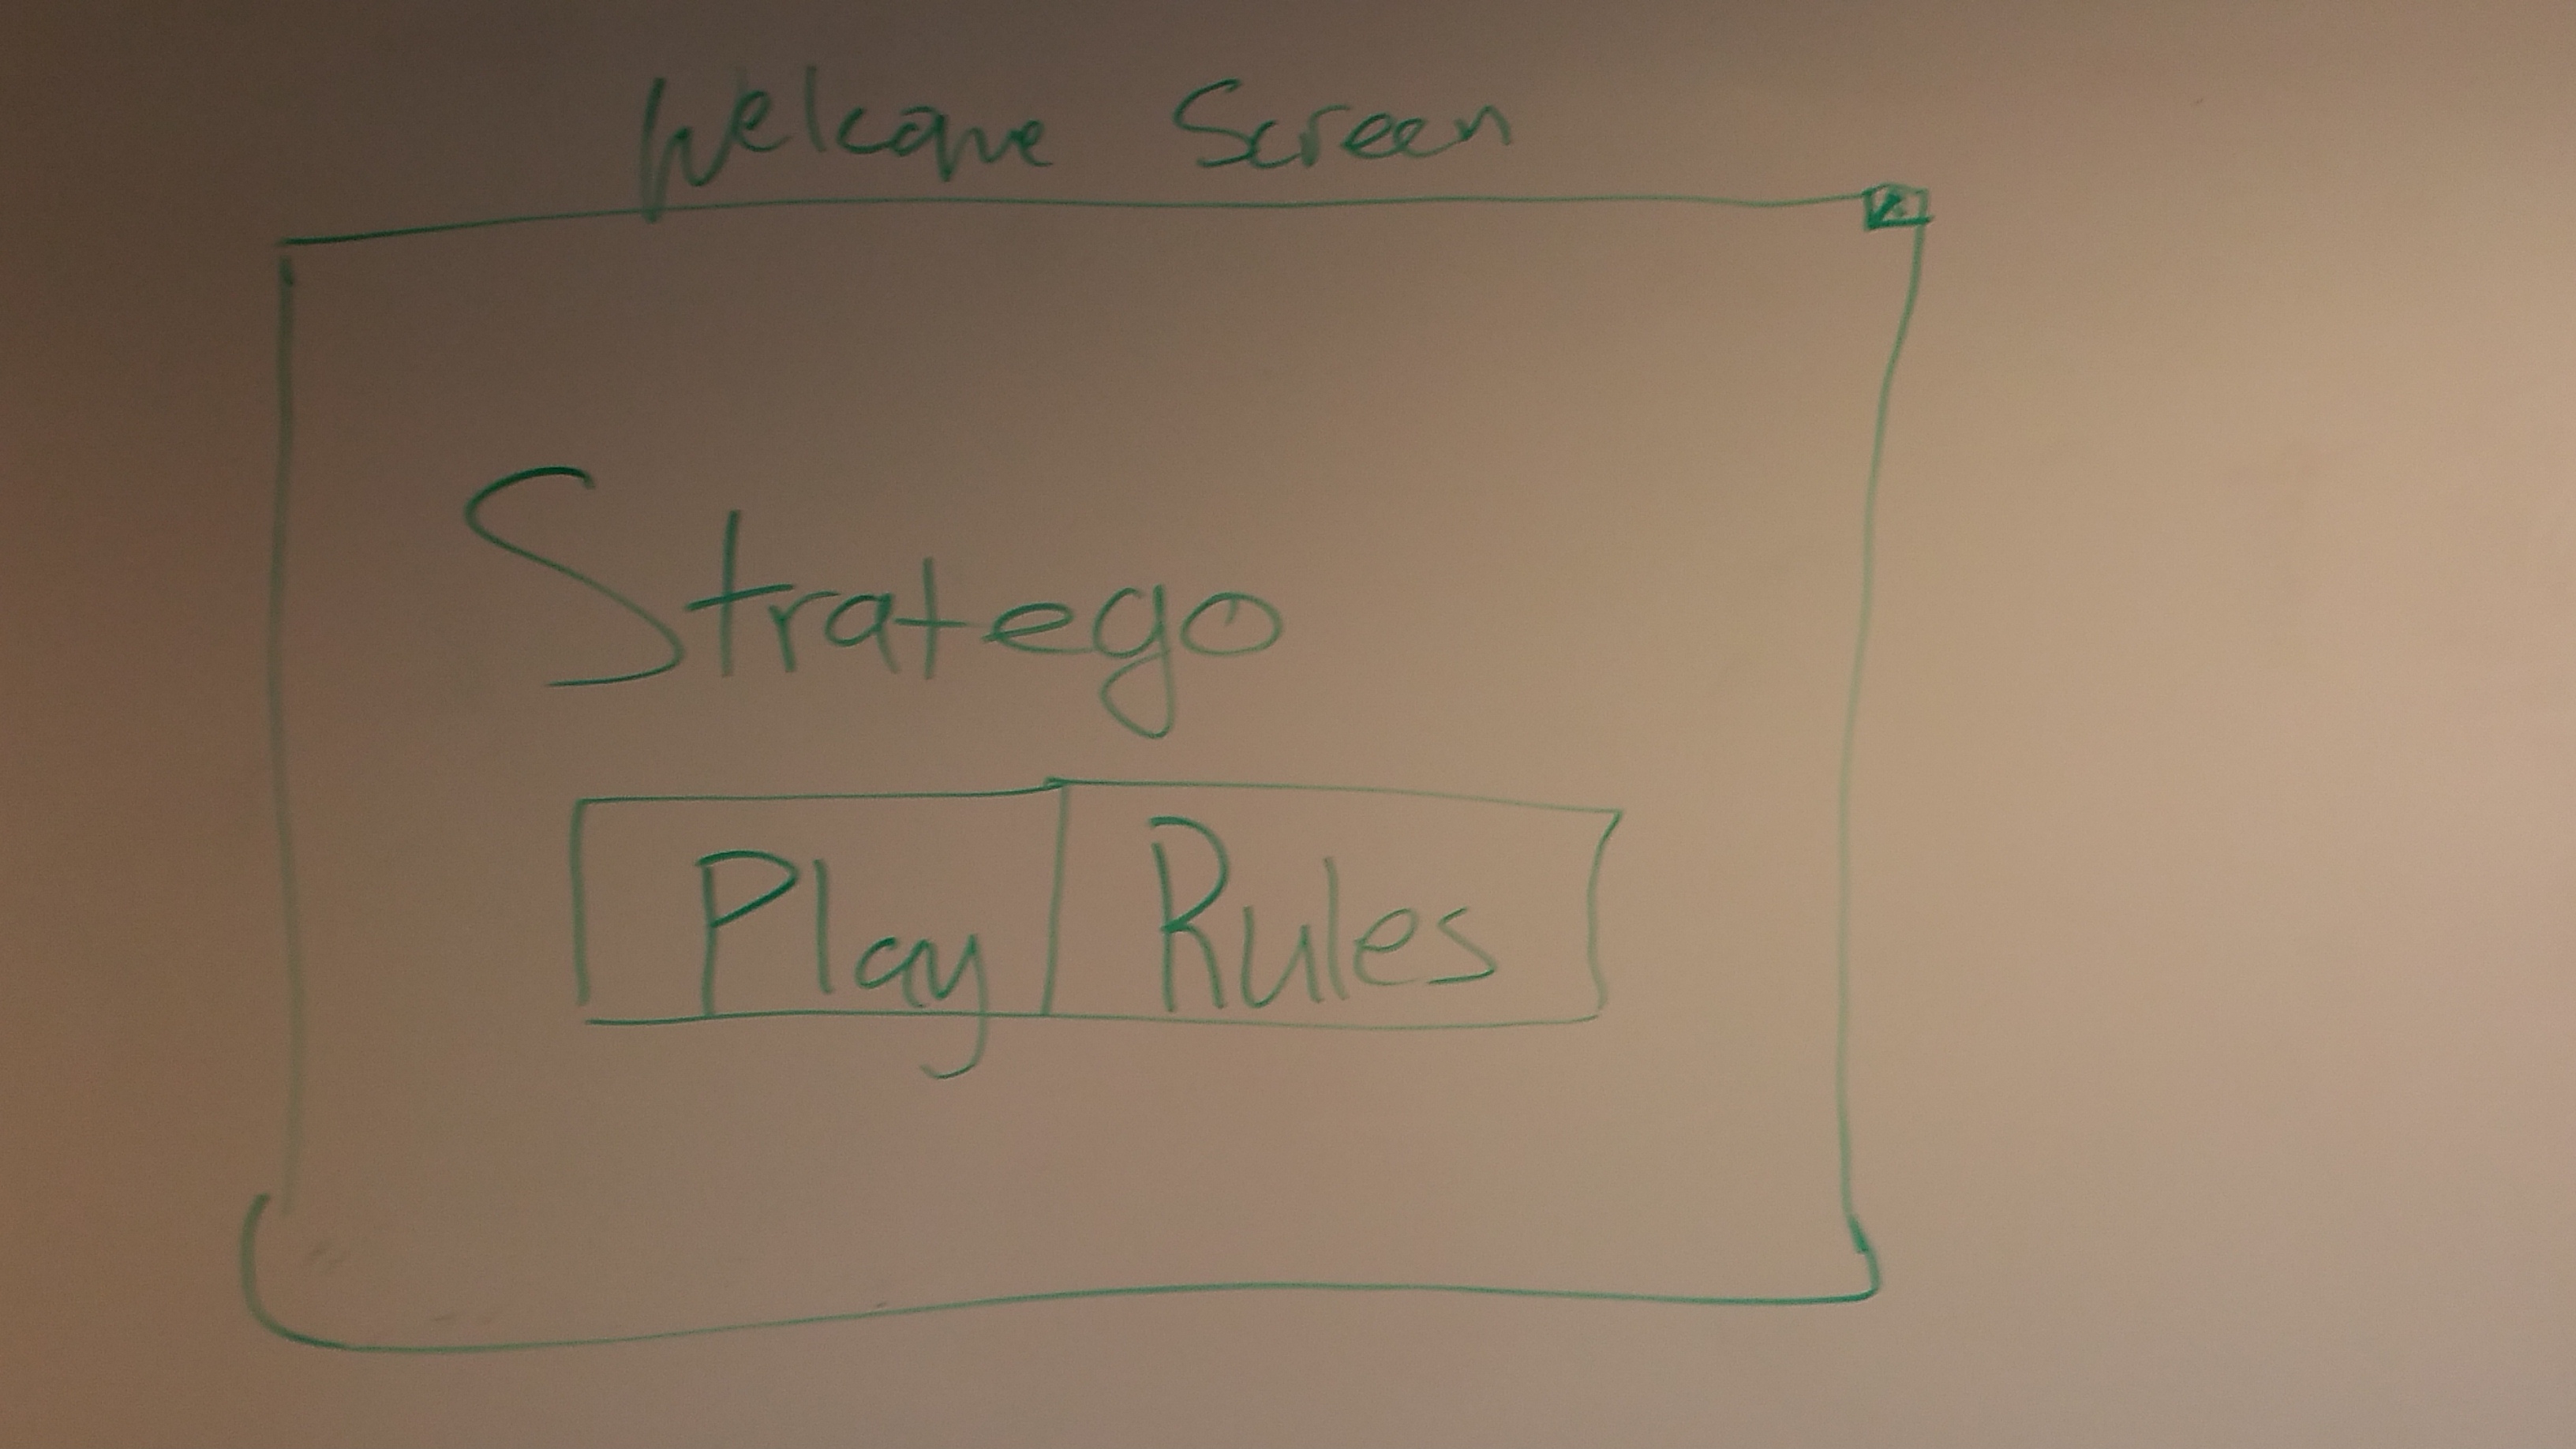 Welcome Screen
Stratego
Play Rules